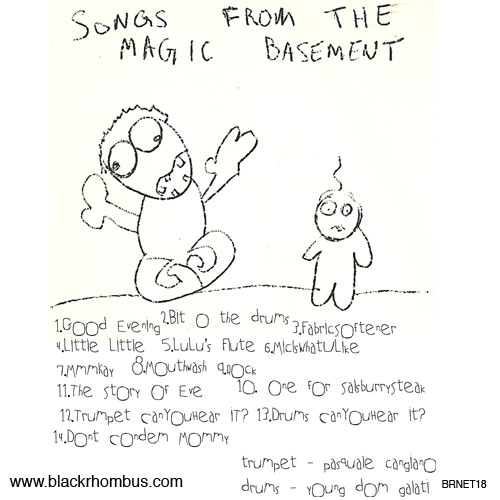 SONGS FROM THE
MAGIC BASEMENT
1.GOOd Evening 2.Bit O the drums 3.FabricsOftener
4.Little Little 5.LuLu's Flute 6.MicIswhatULike
7.Mmmkay 8.MOuthwash 9.ROck
11.The stOry Of Eve 10. One fOr salsburrysteak
12.Trumpet canYOuHear IT? 13.Drums canYOuHear It?
14.DOnt cOndem MOmmy
trumpet - pasquale cangiano
www.blackrhombus.com drums - yOung dOm galati BRNET18